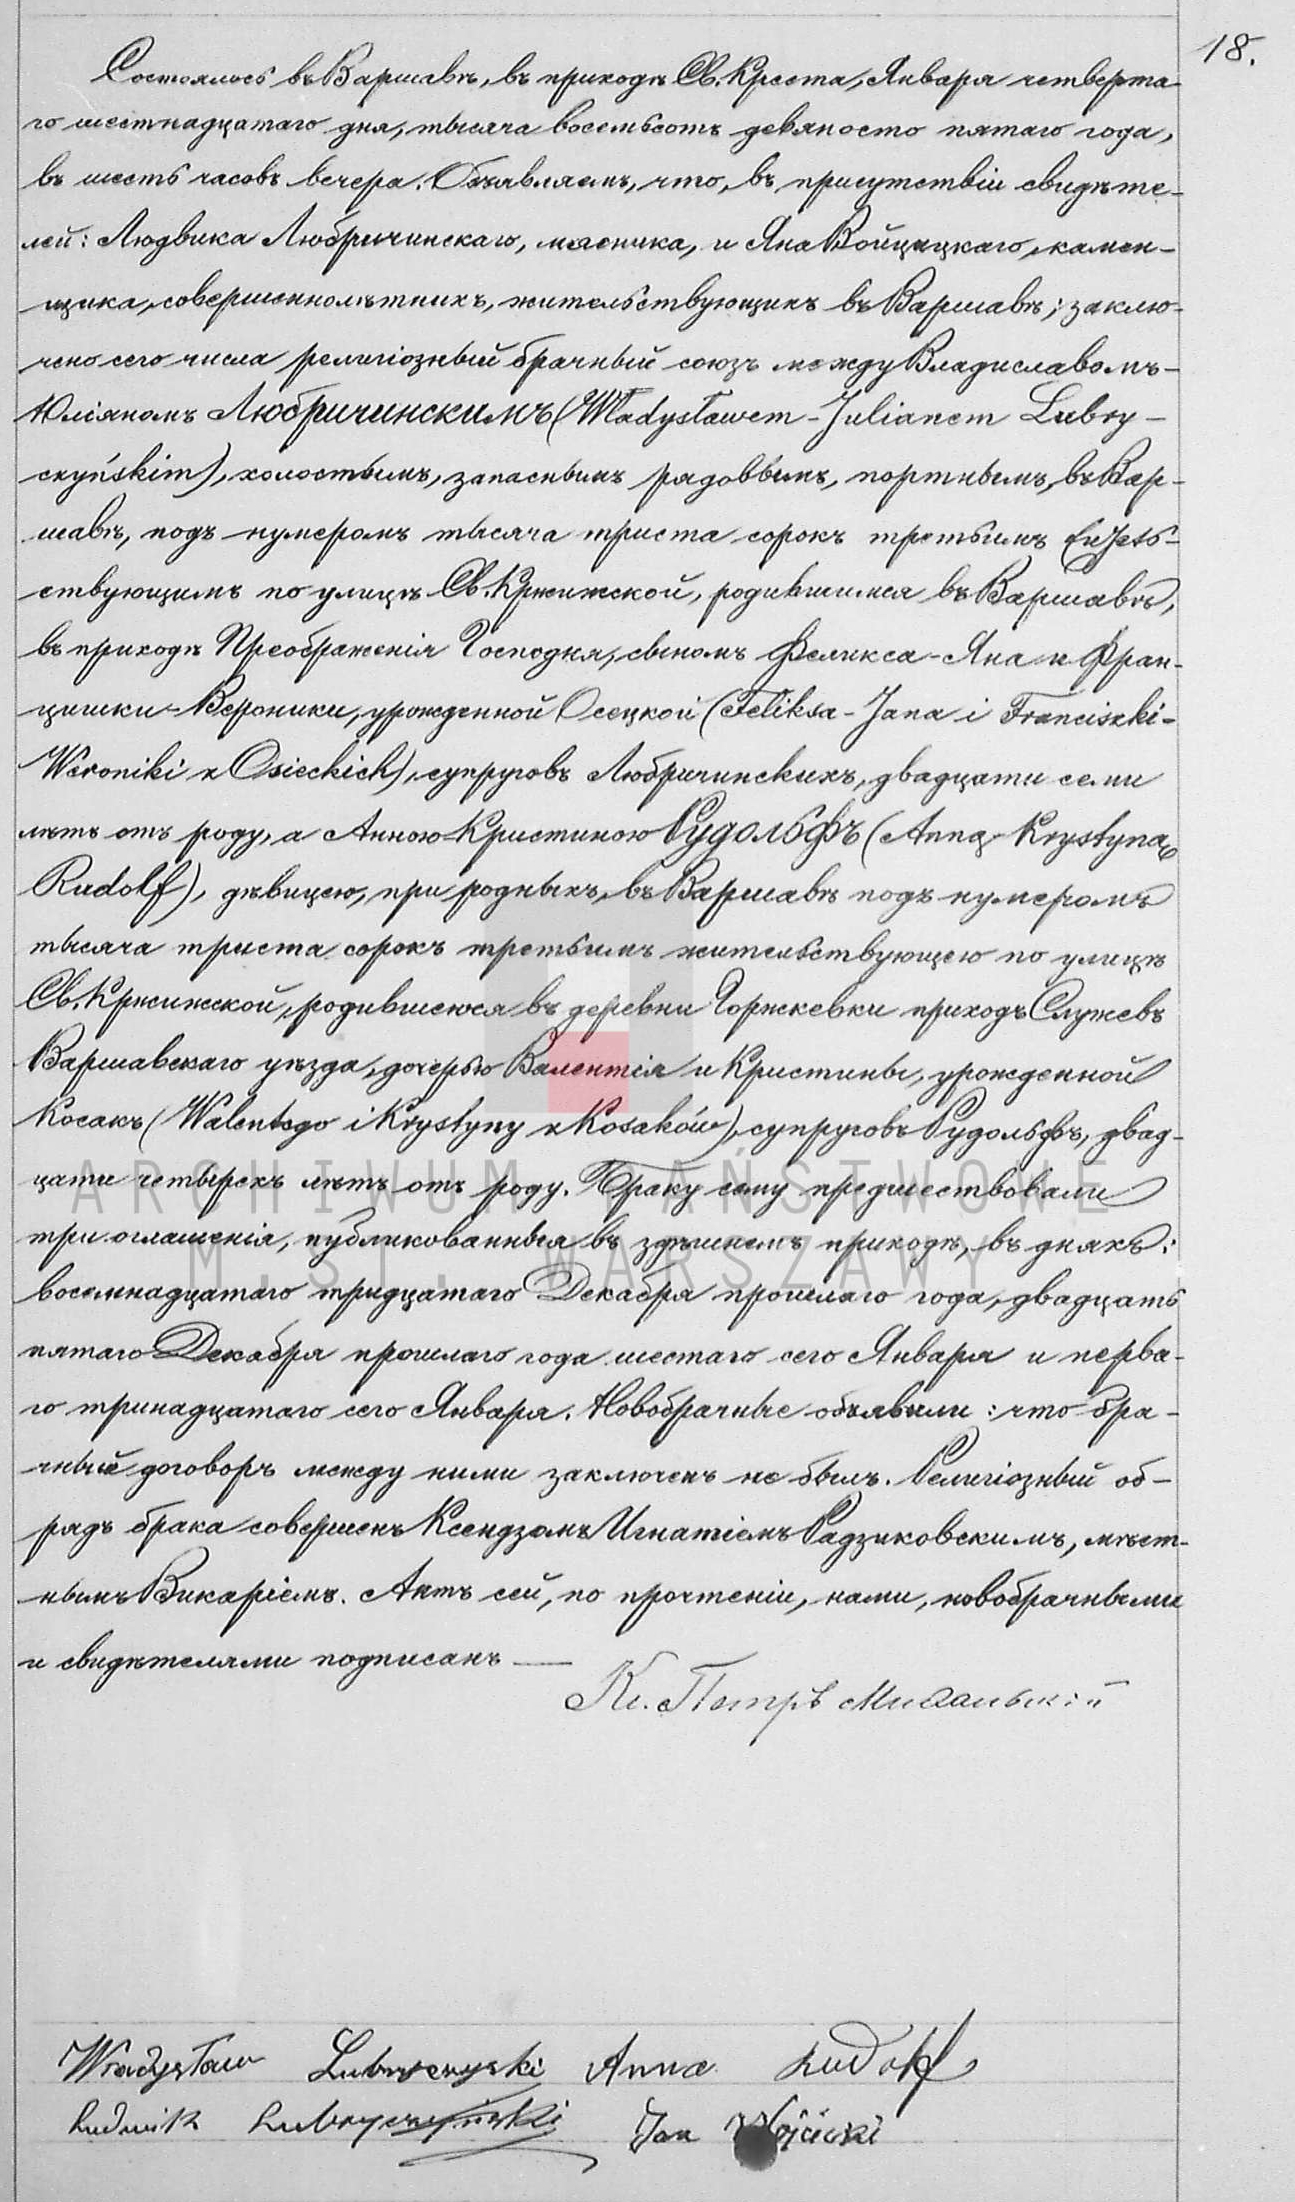 18.
Состоялось въ Варшавѣ, въ приходѣ Св. Креста, Января четверта-
го шестнадцатаго дня, тысяча восемьсотъ девяносто пятаго года,
въ шесть часовъ вечера. Объявляемъ, что, въ присутствіи свидѣте-
лей: Людвика Любричинскаго, мясника, и Яна Войцицкаго, камен-
щика, совершеннолѣтнихъ, жительствующихъ въ Варшавѣ; заклю-
чено сего числа религіозный брачный союзъ между Владиславомъ-
Юліяномъ Любричинскимъ (Władysławem-Julianem Lubry-
czyńskim), холостымъ, запаснымъ рядовымъ, портнымъ, въ Вар-
шавѣ, подъ нумеромъ тысяча триста сорокъ третьимъ
ствующимъ по улицѣ Св. Кржижской, родившимся въ Варшавѣ,
въ приходѣ Преображенія Господня, сыномъ Феликса-Яна и Фран-
цишки-Вероники, урожденной Осецкой (Feliksa-Jana i Franciszki-
Weroniki z Osieckich), супруговъ Любричинскихъ, двадцати семи
лѣтъ отъ роду, а Анною-Кристиною Рудольфъ (Anną Krystyną
Rudolf), дѣвицею, при родныхъ, въ Варшавѣ подъ нумеромъ
тысяча триста сорокъ третьимъ жительствующею по улицѣ
Св. Кржижской, родившеюся въ деревни Горжкевки приходъ Служевъ
Варшавскаго уѣзда, дочерью Валентія и Кристины, урожденной
Косакъ (Walentego i Krystyny z Kosaków), супруговъ Рудольфъ, двад-
цати четырехъ лѣтъ отъ роду. Браку сему предшествовали
три оглашенія, публикованныя въ здѣшнемъ приходѣ, въ дняхъ:
восемнадцатаго тридцатаго Декабря прошлаго года, двадцать
пятаго Декабря прошлаго года шестаго сего Января и перва-
го тринадцатаго сего Января. Новобрачные объявили: что бра-
чный договоръ между ними заключенъ не былъ. Религіозный об-
рядъ брака совершенъ Ксендзомъ Игнатіемъ Радзиковскимъ, мѣст-
нымъ Викаріемъ. Актъ сей, по прочтеніи, нами, новобрачными
и свидѣтелями подписанъ —
Кс. Петръ
Władysław Lubryczyski Anna Rudolf
Ludwik Lubryczyński Jan Wójcicki
ARCHIWUM PAŃSTWOWE
M.ST. WARSZAWY